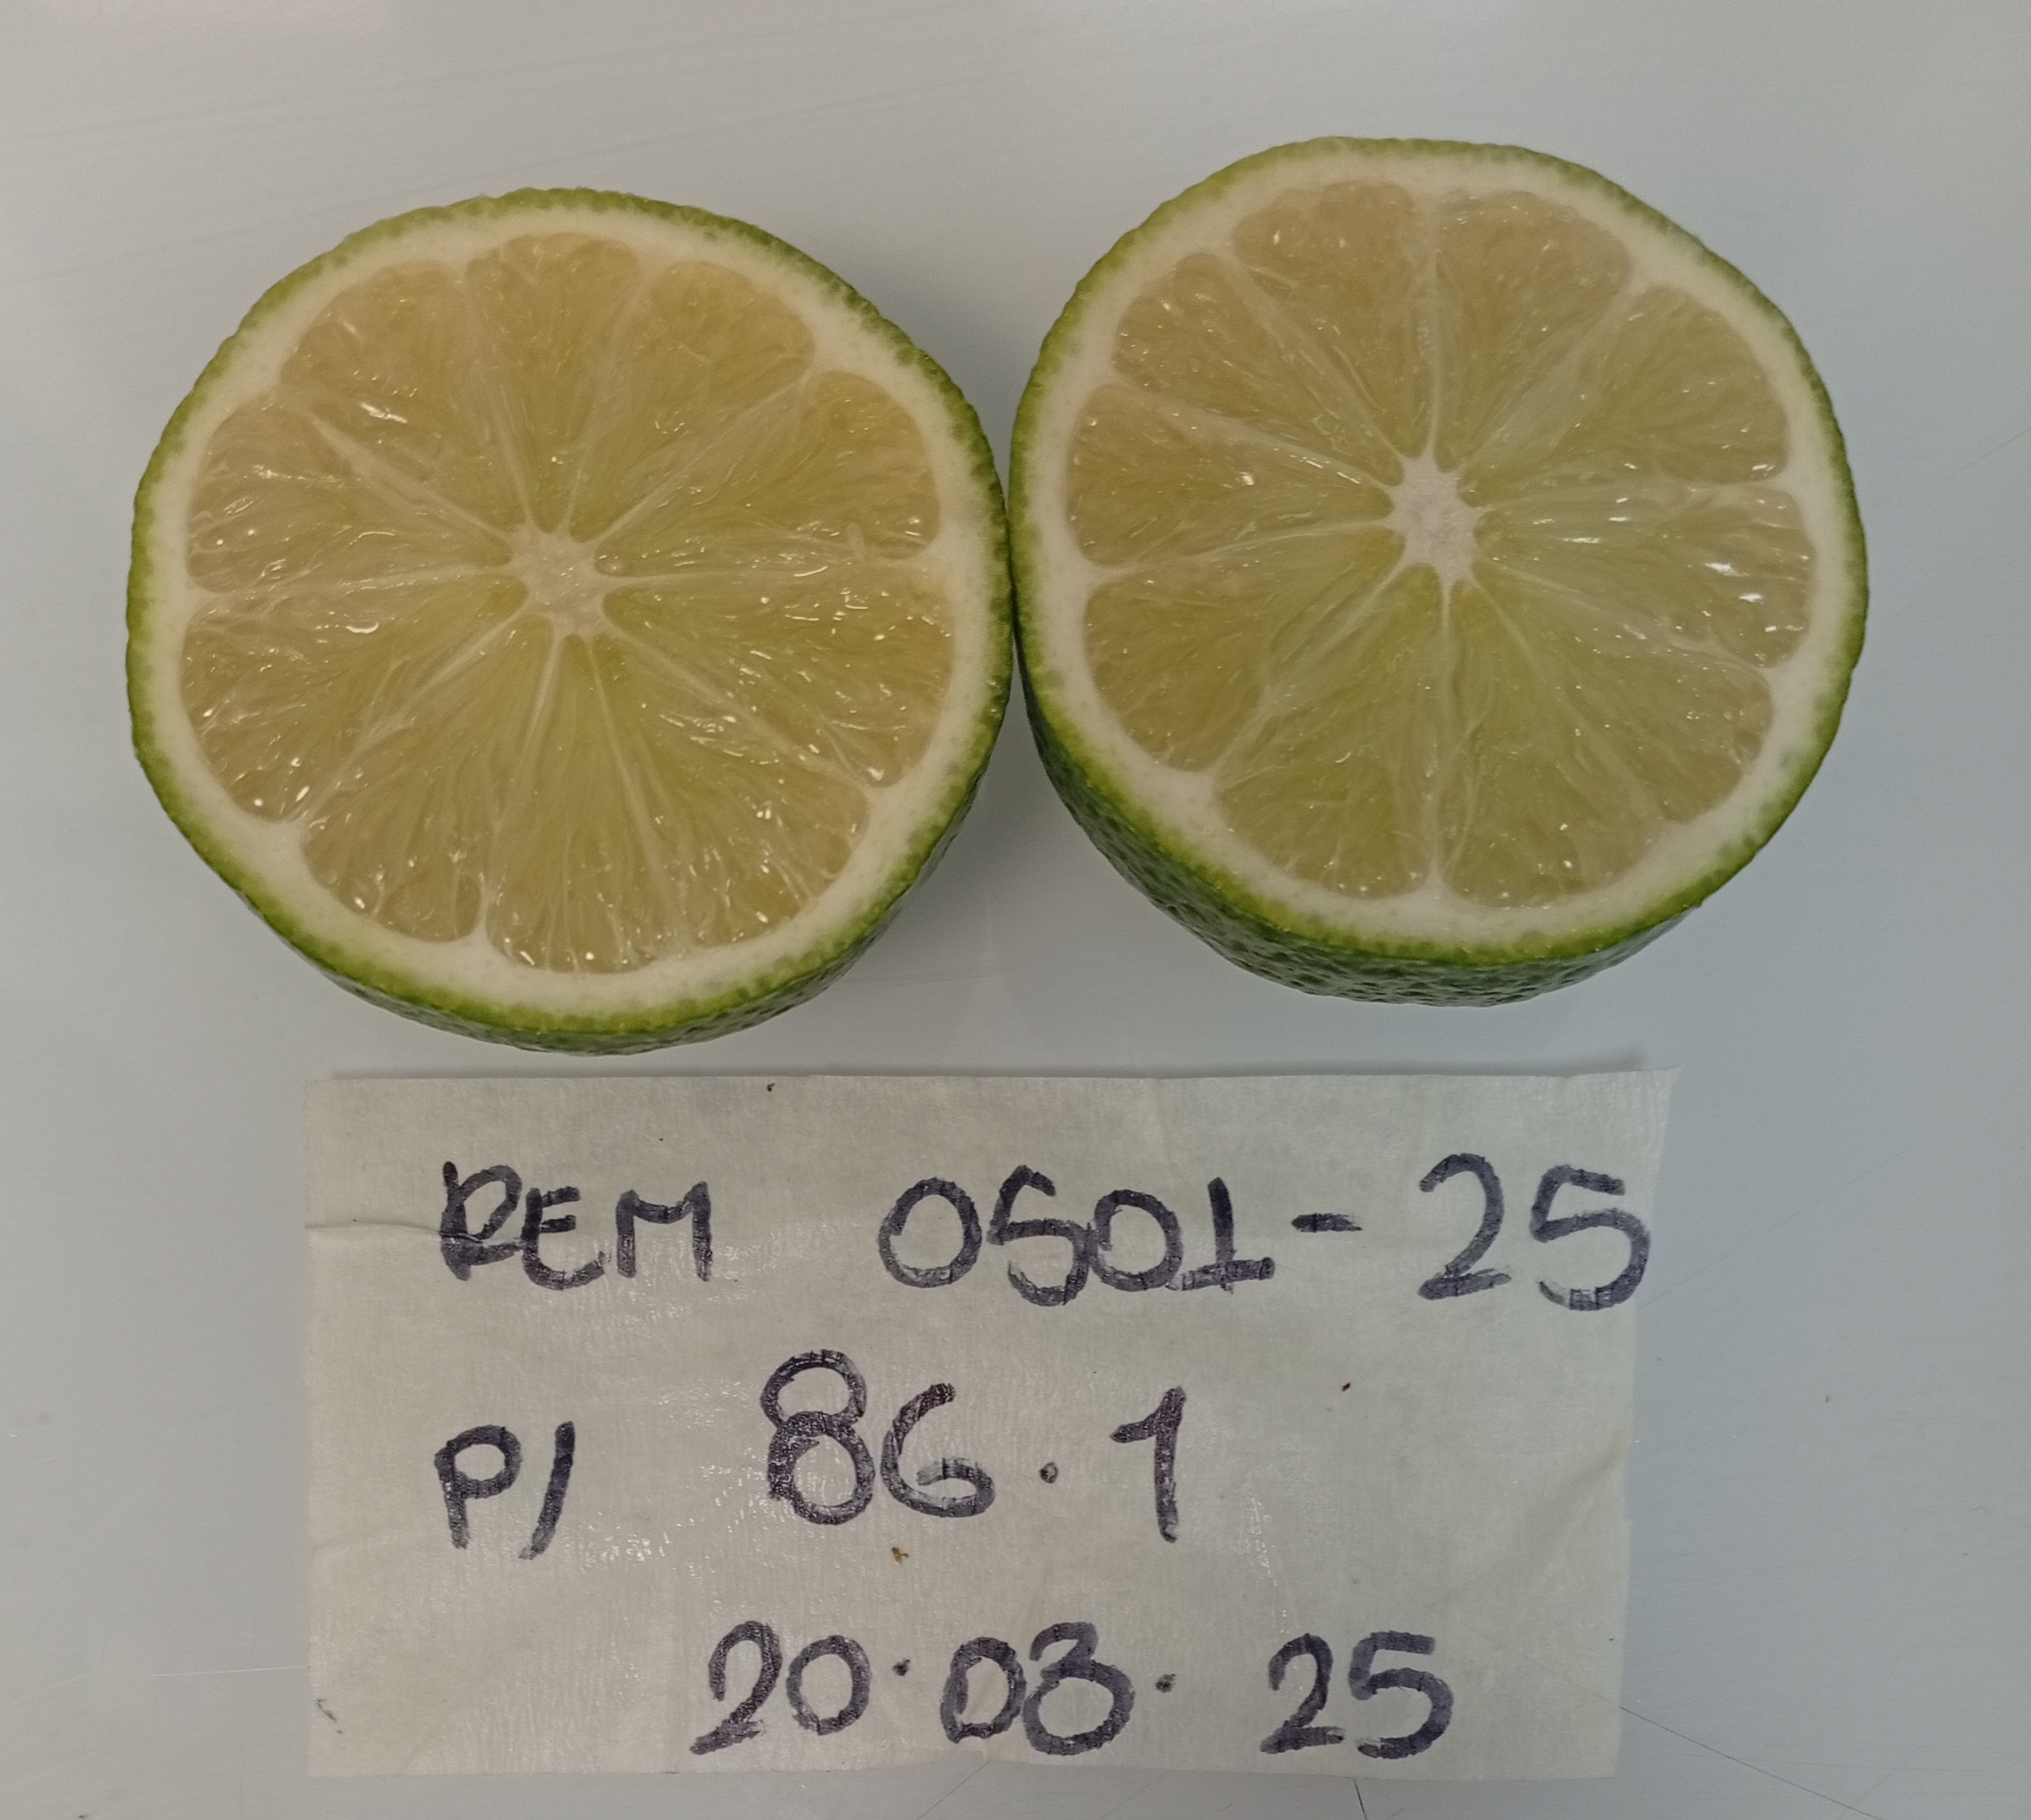 REM 0501-25
P/ 86.1
20.03.25